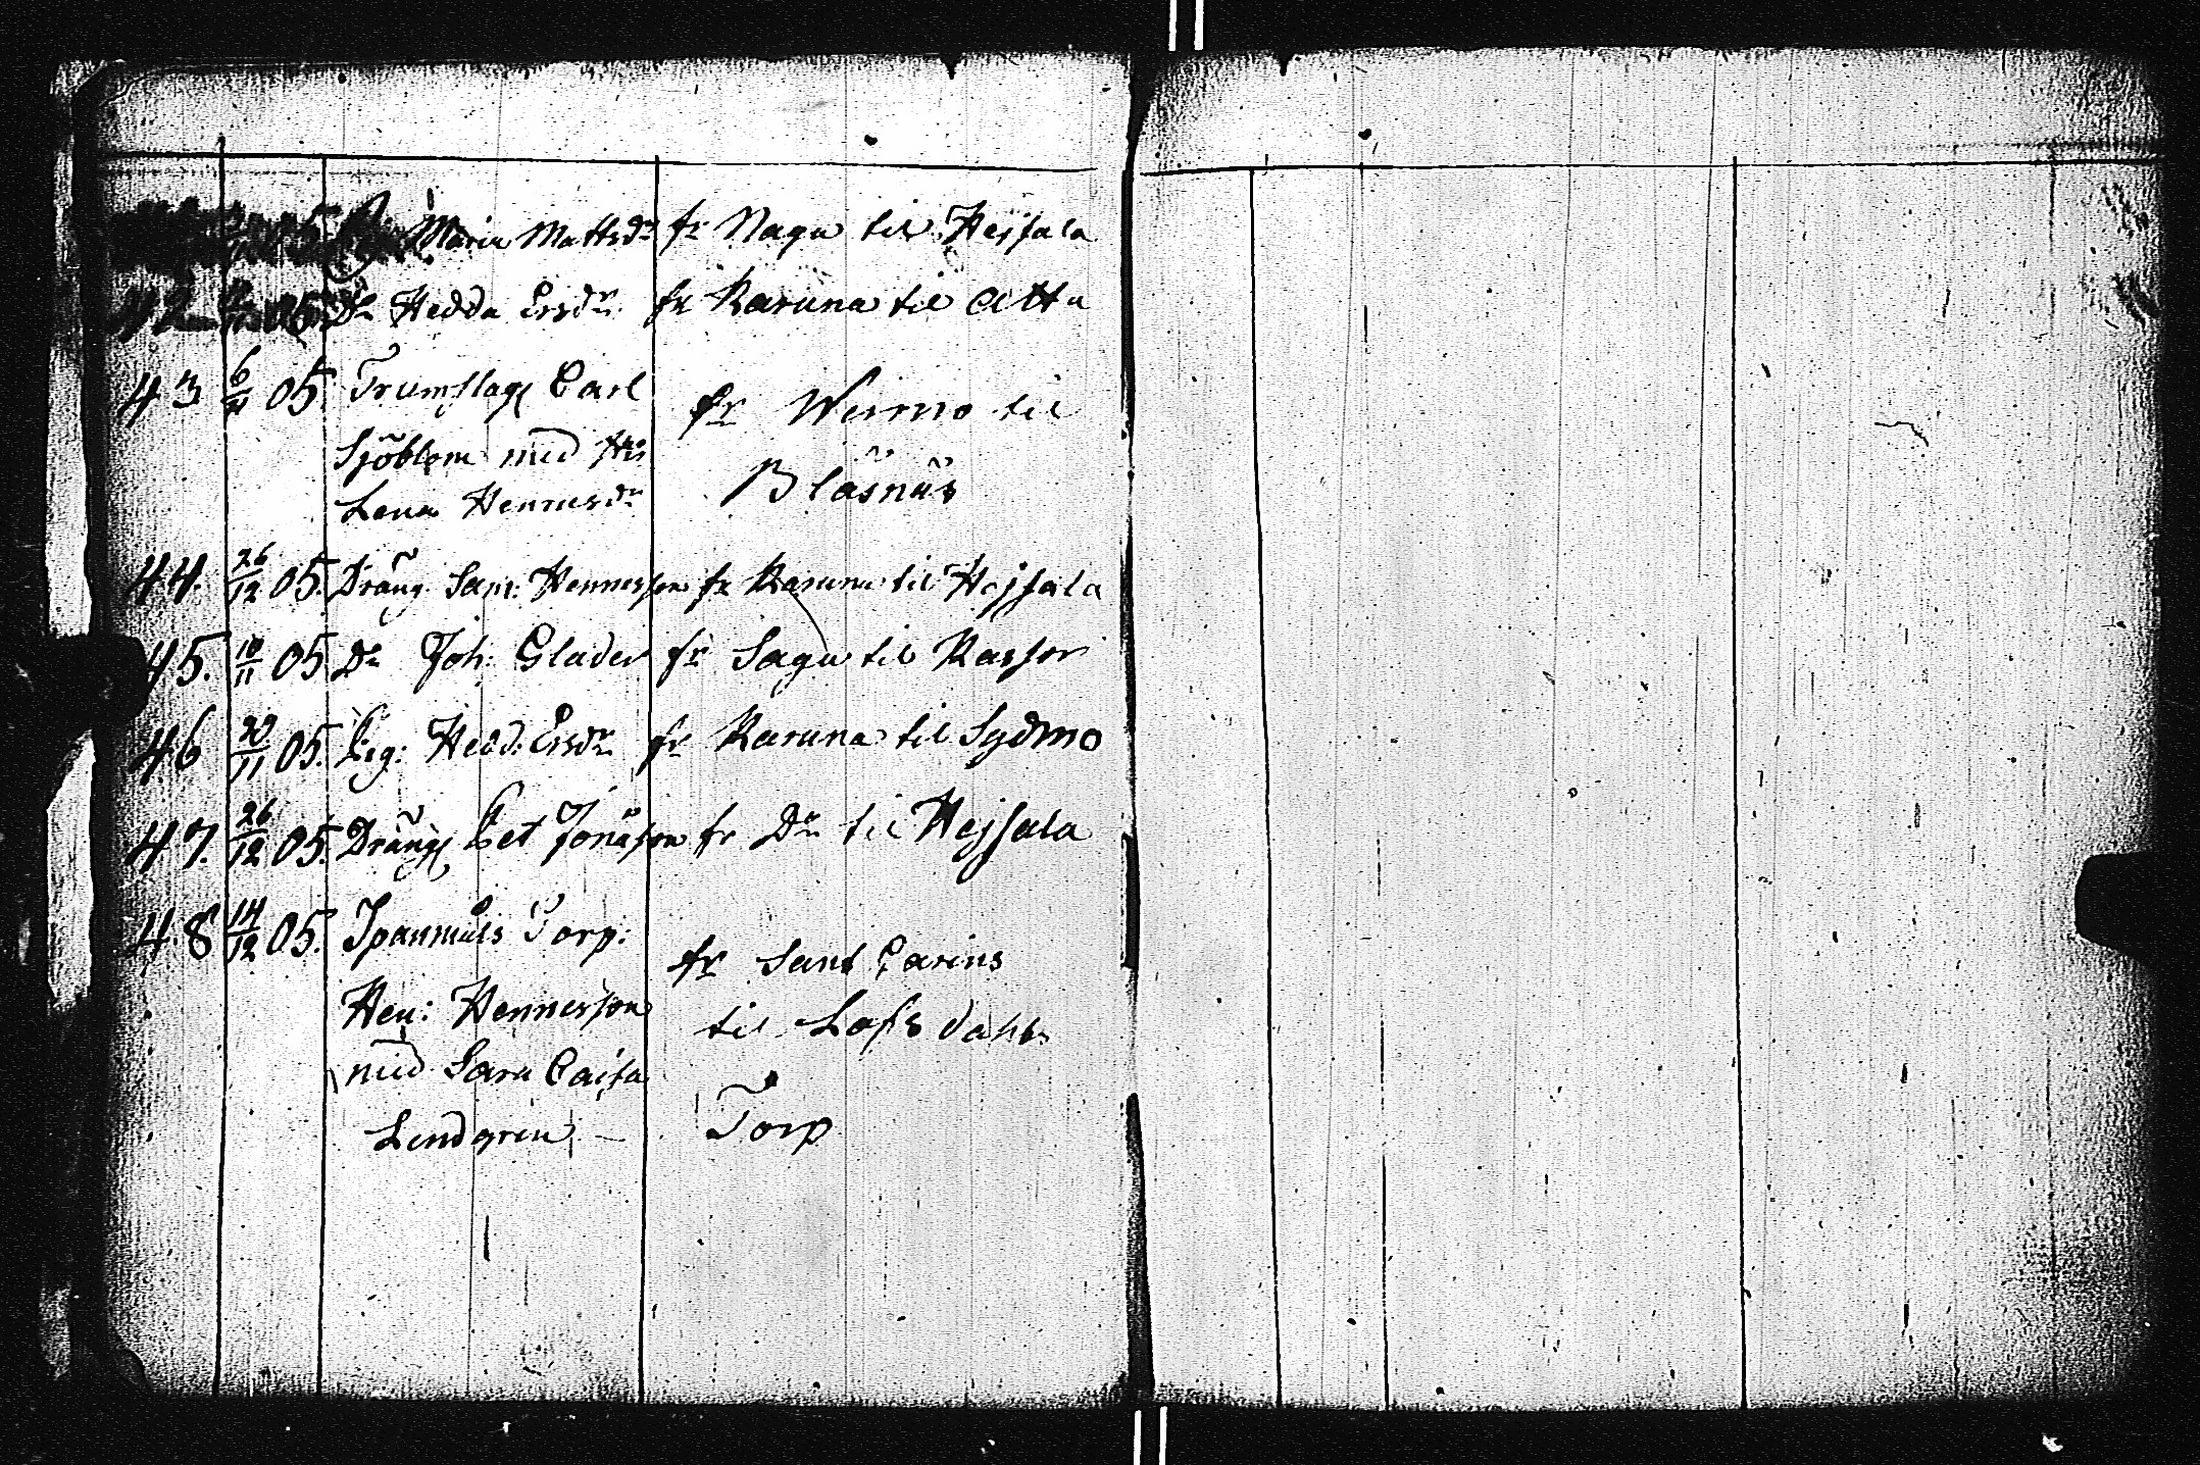 Maria Mattsdr fr Nagu til Hejsala
42 05. Do Hedda Ersdr fr Karuna til Attu
43 6/11 05. Trumslag Carl
Sjöblom med Hu
Lena Hennesdr
fr Wirmo til
Bläsnäs
44. 26/12 05. Dräng Sam: Hennesson fr Karuna til Hejsala
45. 10/11 05 Do Joh: Glader fr Sagu til Kassor
46 20/11 05. Pig: Hedd: Ersdr fr Karuna til Sydmo
47. 26/12 05. Dräng Pet Jonäson fr Do til Hejsala
48 14/12 05. Spanmåls Torp:
Hen: Hennersson
med Sara Caisa
Lindgren
fr Sant Carins
til Lofsdahls
Torp